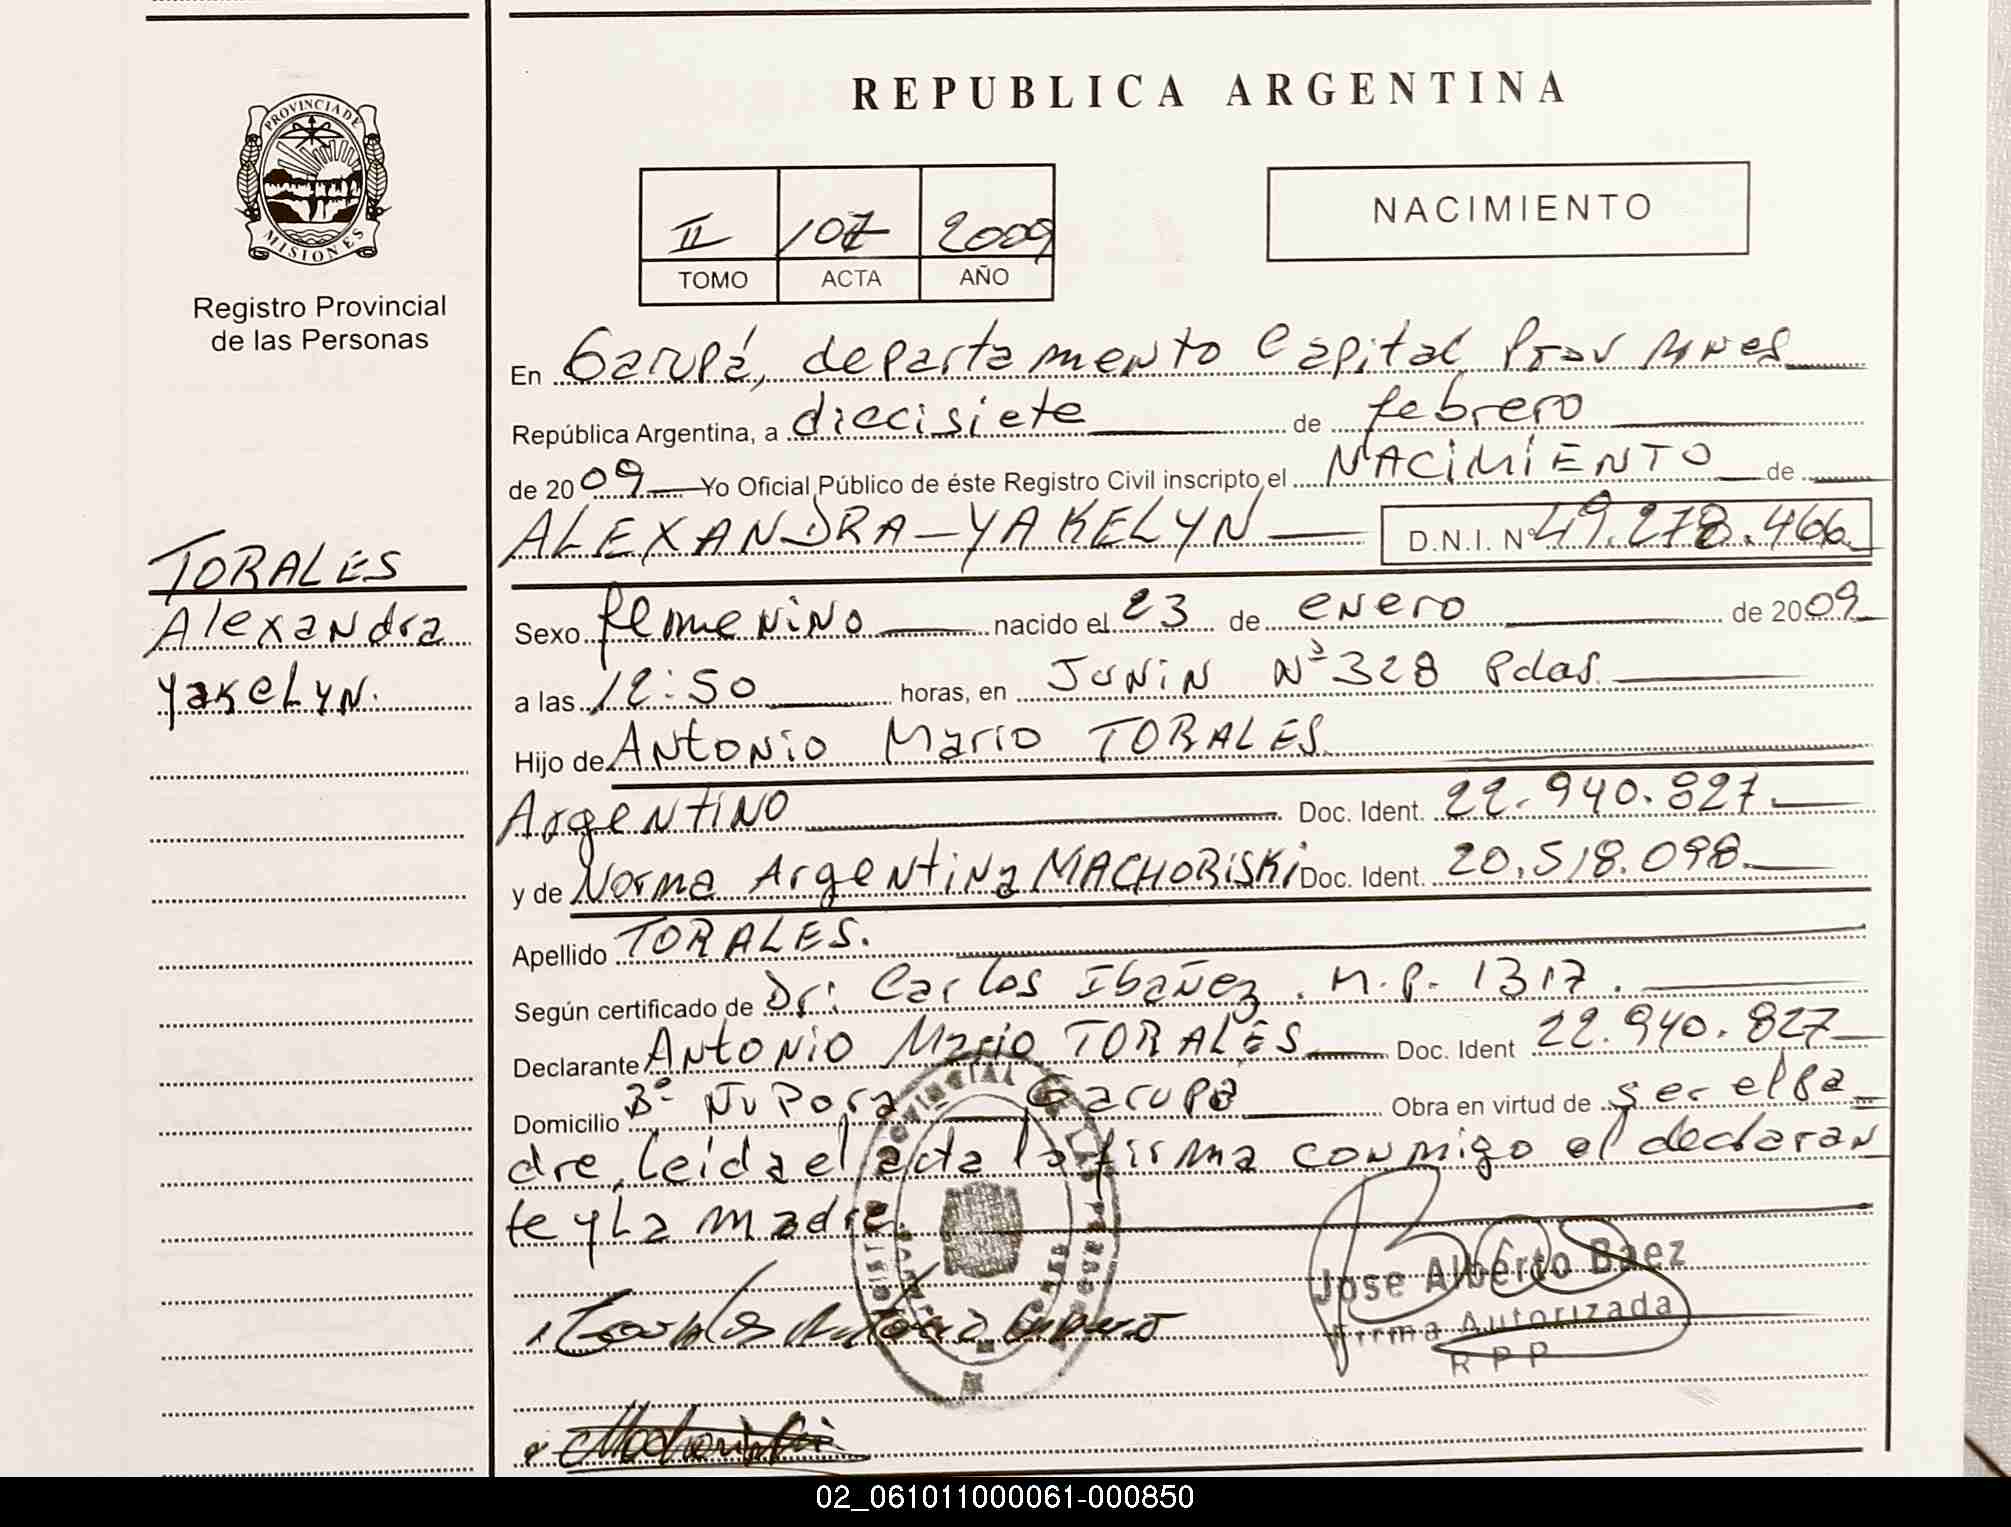 REPUBLICA ARGENTINA
PROVINCIA DE MISIONES
Registro Provincial
de las Personas
II 107 2009
TOMO ACTA AÑO
NACIMIENTO
En Garupá, departamento Capital Prov Mnes
República Argentina, a diecisiete de febrero
de 2009 Yo Oficial Público de éste Registro Civil inscripto el NACIMIENTO de
ALEXANDRA-YAKELYN D.N.I. Nº 49.278.466
TORALES
Alexandra
Yakelyn.
Sexo femenino nacido el 23 de enero de 2009
a las 12:50 horas, en Junin Nº 328 Pdas.
Hijo de Antonio Mario TORALES
Argentino Doc. Ident. 22.940.827
y de Norma Argentina MACHORISKI Doc. Ident. 20.518.098
Apellido TORALES.
Según certificado de Dr: Carlos Ibañez. M.P. 1317.
Declarante Antonio Mario TORALES Doc. Ident 22.940.827
Domicilio Bº Ñu Pora Garupa Obra en virtud de ser el pa
dre, leida el acta la firma conmigo el declaran
te y la madre.
Jose Alberto Baez
Firma Autorizada
R P P
02_061011000061-000850